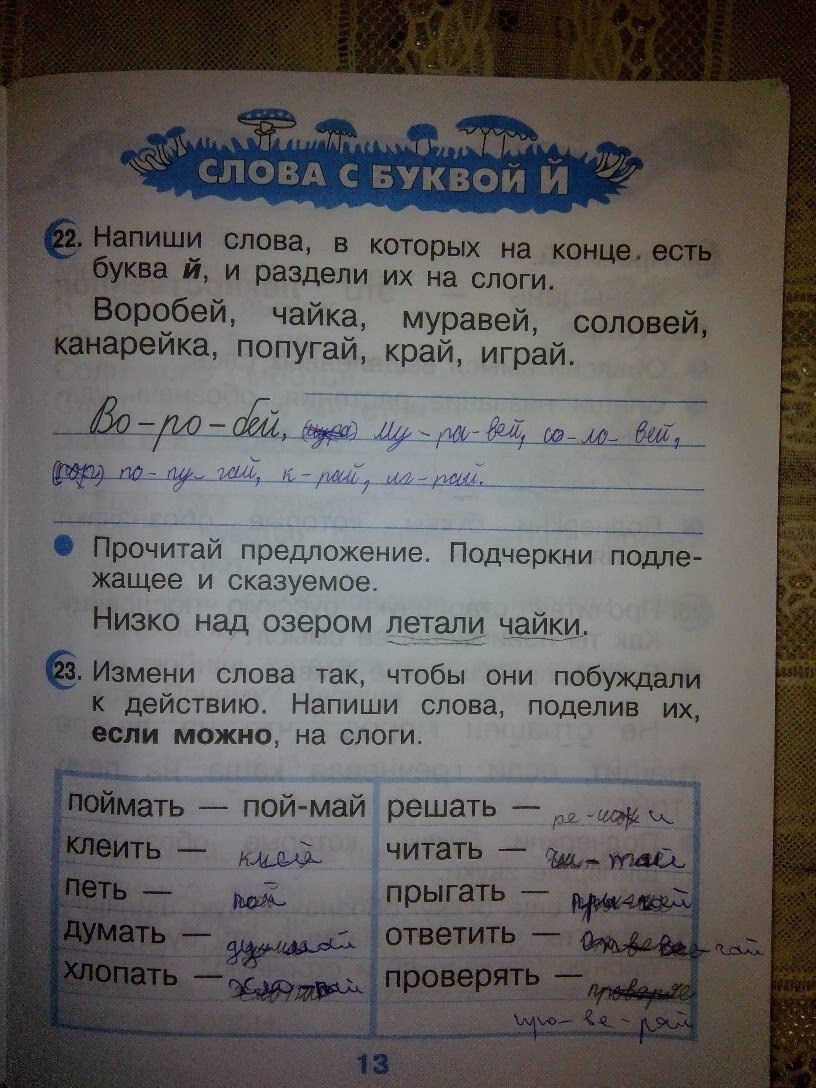 СЛОВА С БУКВОЙ Й
22. Напиши слова, в которых на конце есть
буква й, и раздели их на слоги.
Воробей, чайка, муравей, соловей,
канарейка, попугай, край, играй.
Во-ро-бей, му-ра-вей, со-ло-вей,
по-пу-гай, к-рай, иг-рай.
Прочитай предложение. Подчеркни подле-
жащее и сказуемое.
Низко над озером летали чайки.
23. Измени слова так, чтобы они побуждали
к действию. Напиши слова, поделив их,
если можно, на слоги.
поймать — пой-май
клеить — клей
петь — пой
думать —
хлопать —
решать —
читать — чи-тай
прыгать —
ответить —
проверять —
про-ве-ряй
13